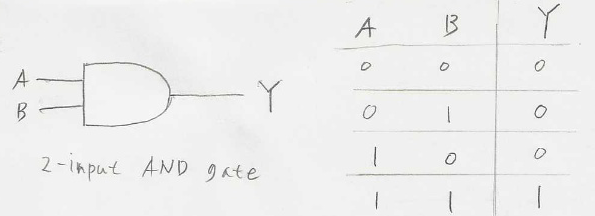 A
B
Y
2-input AND gate
A B Y
0 0 0
0 1 0
1 0 0
1 1 1